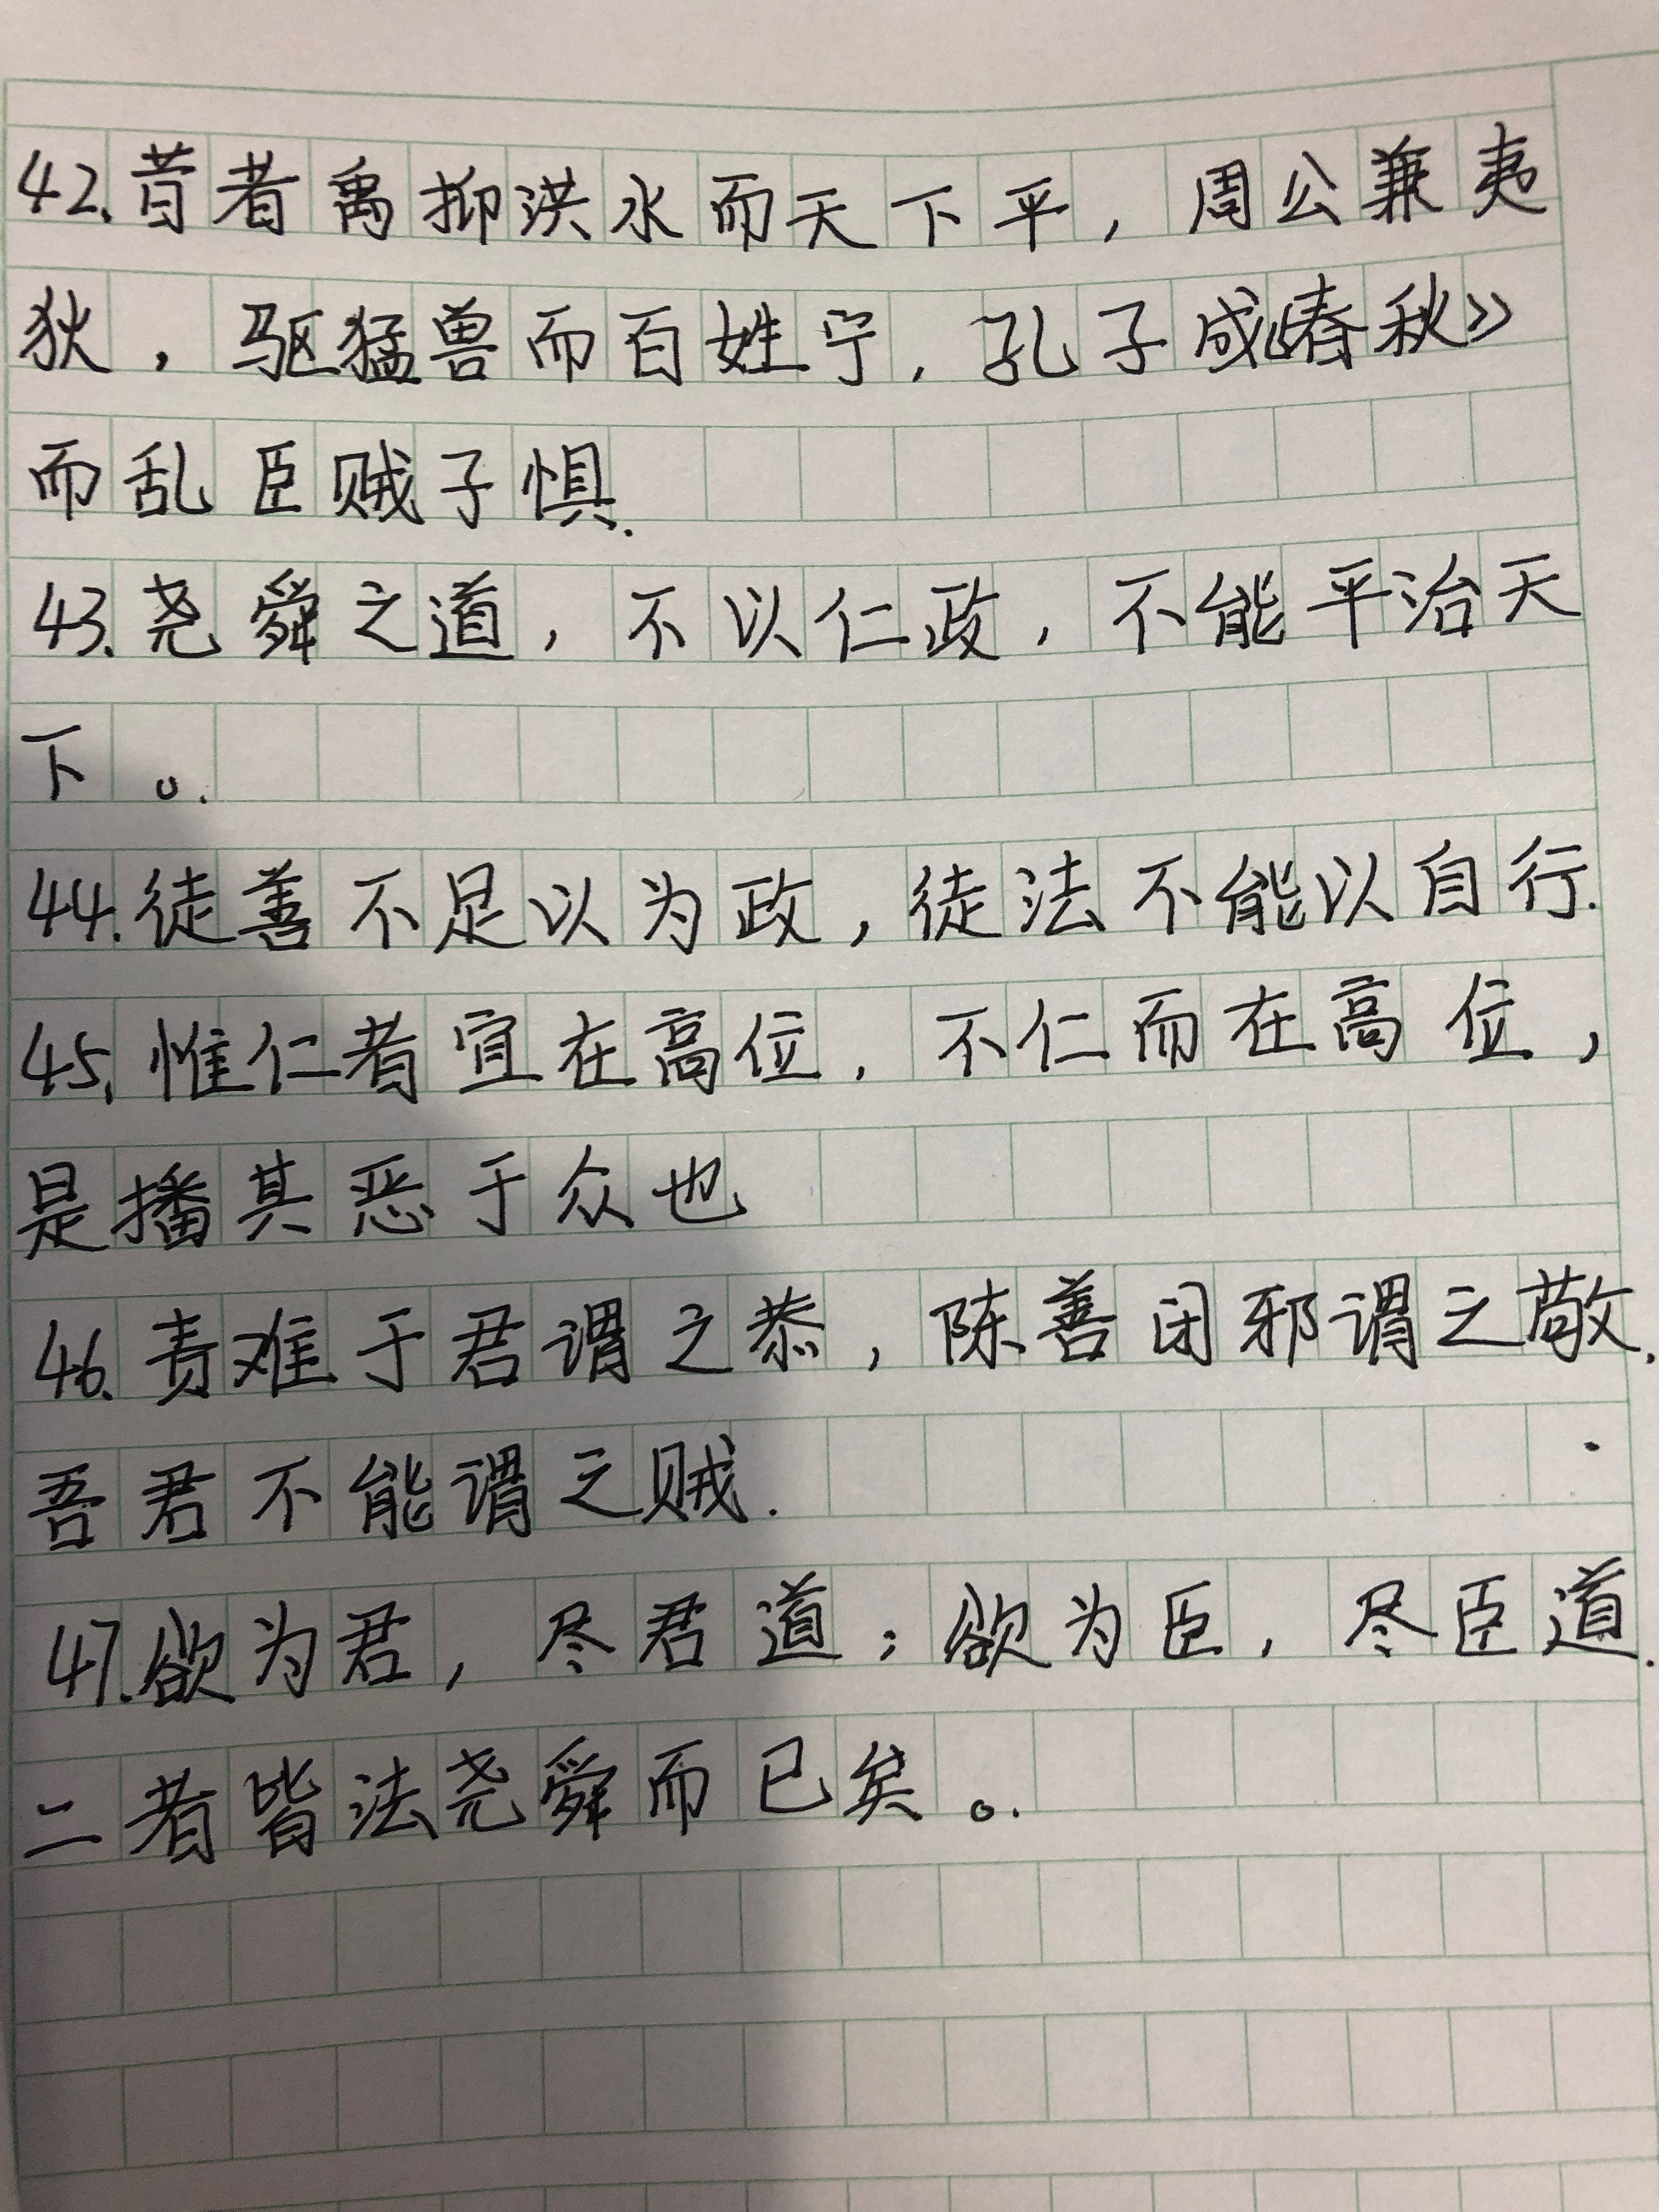 42.昔者禹抑洪水而天下平，周公兼夷
狄，驱猛兽而百姓宁，孔子成《春秋》
而乱臣贼子惧.
43.尧舜之道，不以仁政，不能平治天
下。.
44.徒善不足以为政，徒法不能以自行.
45.惟仁者宜在高位，不仁而在高位，
是播其恶于众也
46.责难于君谓之恭，陈善闭邪谓之敬.
吾君不能谓之贼.
47.欲为君，尽君道；欲为臣，尽臣道.
二者皆法尧舜而已矣。.